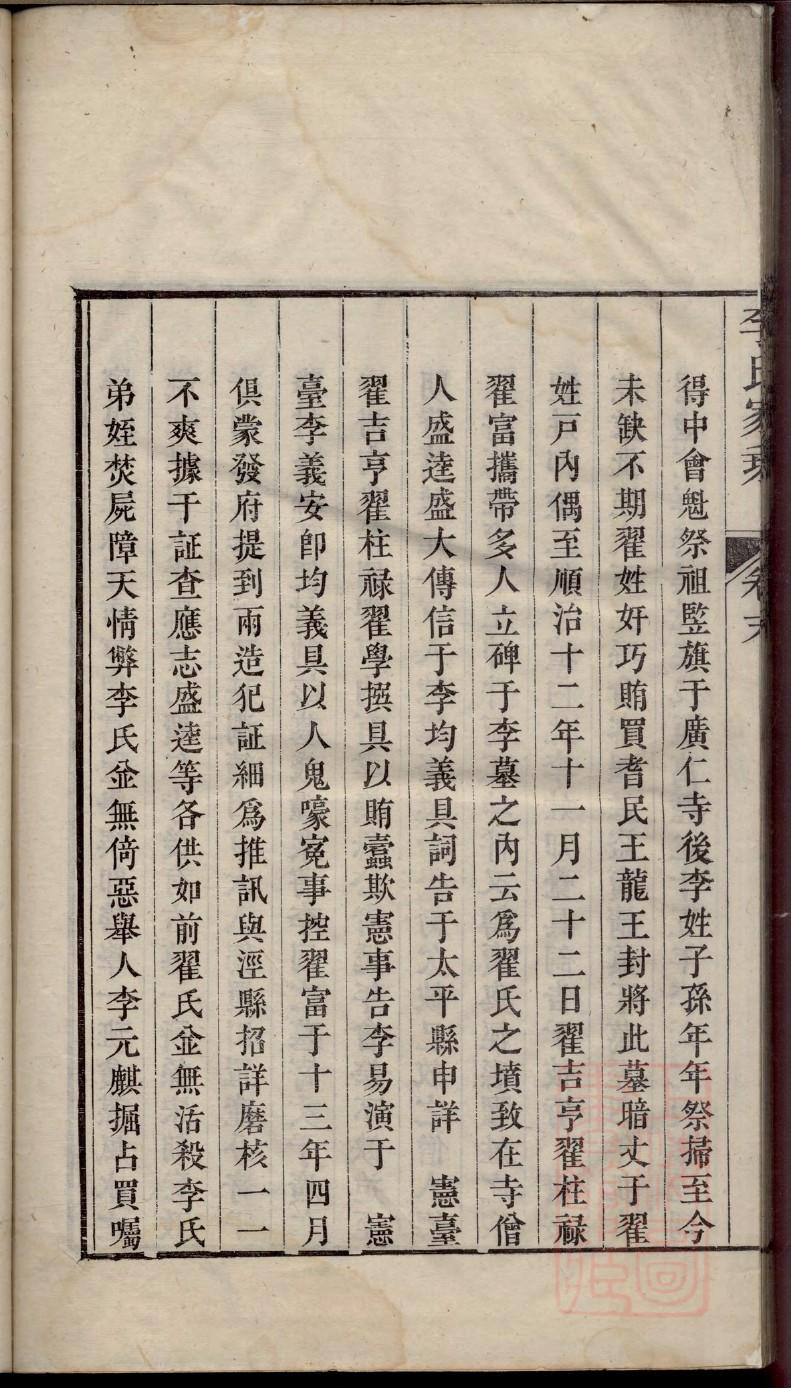 李氏家乘 卷末
得中會魁祭祖竪旗于廣仁寺後李姓子孫年年祭掃至今
未缺不期翟姓奸巧賄買耆民王龍王封將此墓暗丈于翟
姓戸內偶至順治十二年十一月二十二日翟吉亨翟柱祿
翟富攜帶多人立碑于李墓之內云爲翟氏之墳致在寺僧
人盛逵盛大傳信于李均義具詞告于太平縣申詳 憲臺
翟吉亨翟柱祿翟學撰具以賄蠧欺憲事告李易演于 憲
臺李義安卽均義具以人鬼嚎寃事控翟富于十三年四月
俱蒙發府提到兩造犯証細爲推訊與涇縣招詳磨核一一
不爽據干証查應志盛逵等各供如前翟氏並無活殺李氏
弟姪焚屍障天情弊李氏並無倚惡舉人李元麒掘占買囑